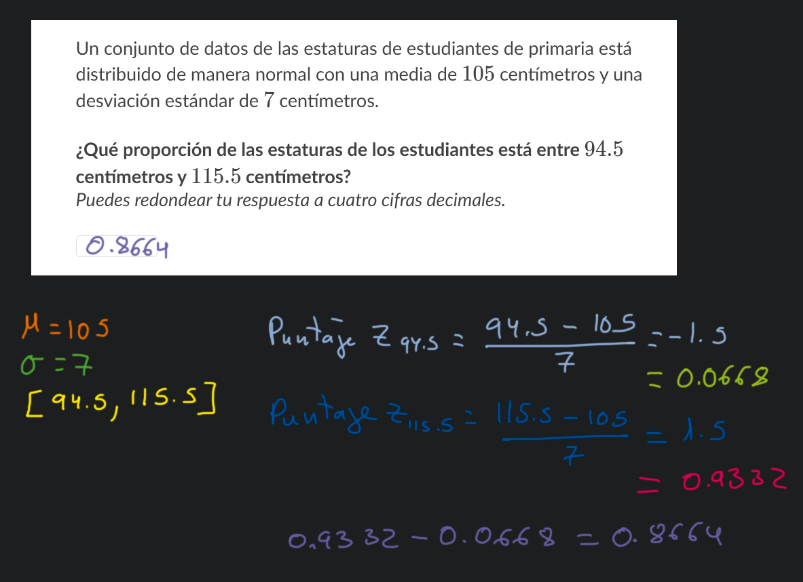 Un conjunto de datos de las estaturas de estudiantes de primaria está
distribuido de manera normal con una media de 105 centímetros y una
desviación estándar de 7 centímetros.
¿Qué proporción de las estaturas de los estudiantes está entre 94.5
centímetros y 115.5 centímetros?
Puedes redondear tu respuesta a cuatro cifras decimales.
0.8664
μ = 105
σ = 7
[94.5, 115.5]
Puntaje z 94.5 = (94.5 - 105) / 7 = -1.5
= 0.0668
Puntaje z 115.5 = (115.5 - 105) / 7 = 1.5
= 0.9332
0.9332 - 0.0668 = 0.8664